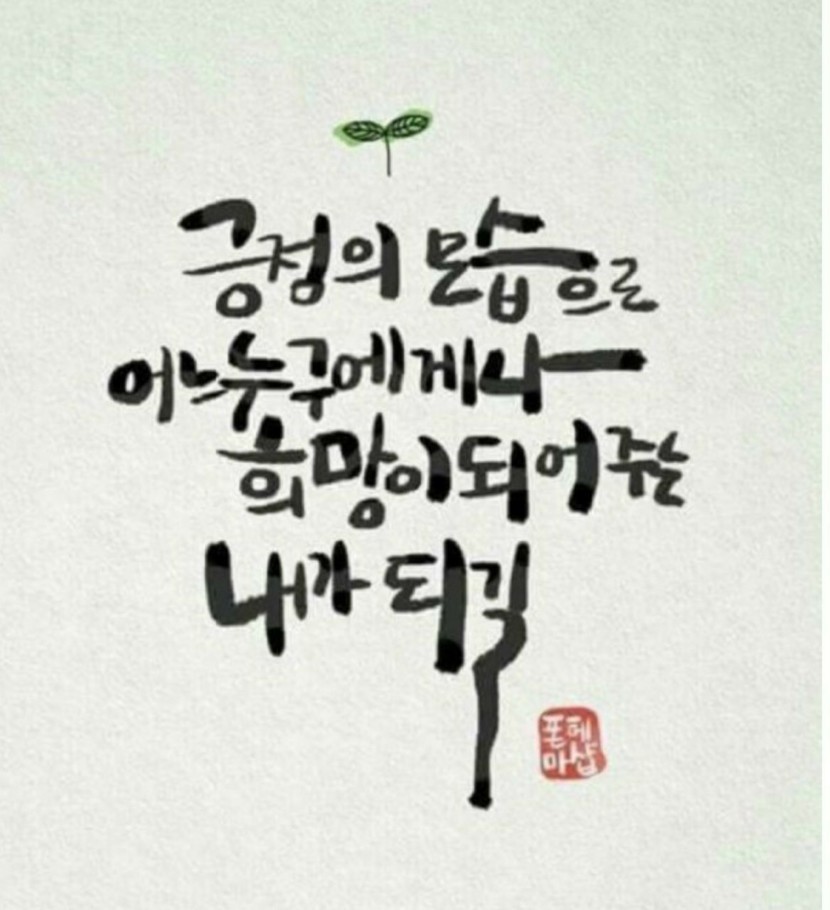 긍정의 모습으로
어느누구에게나
희망이되어주는
내가 되길
폰헤
마샵